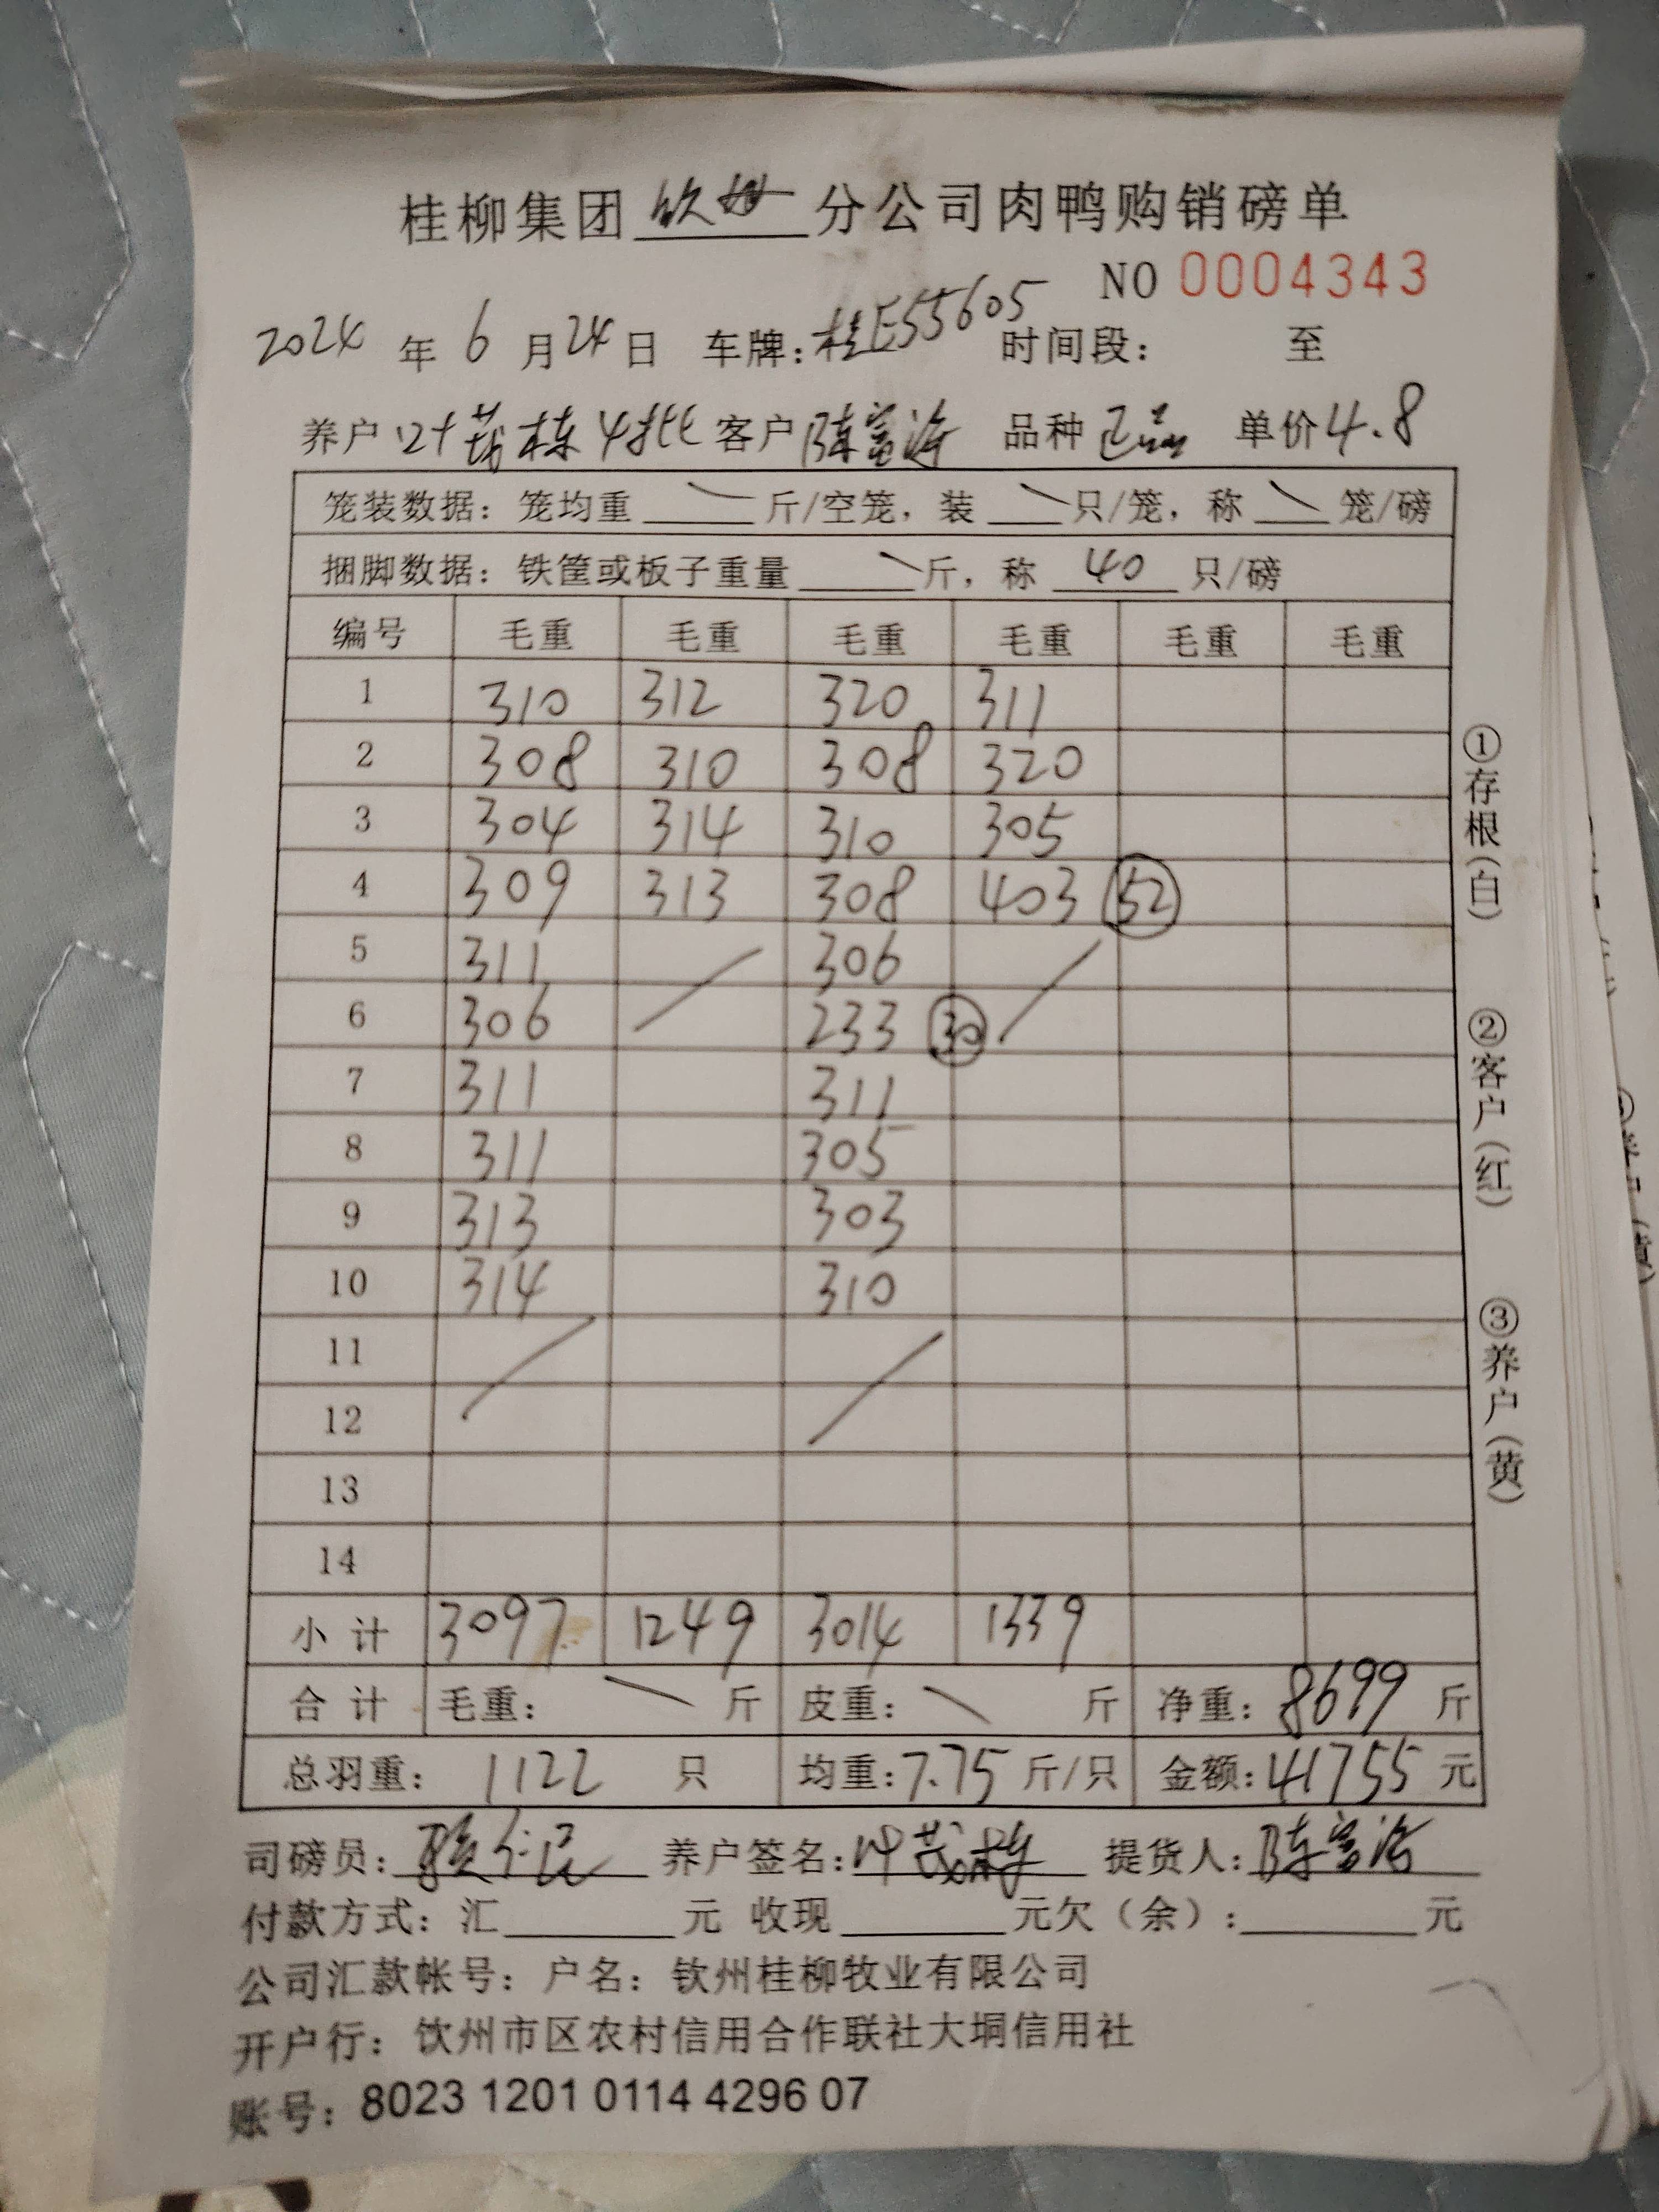 桂柳集团 钦州 分公司肉鸭购销磅单
NO 0004343
2024 年 6 月 24 日 车牌：桂E55605 时间段： 至
养户 叶茂栋4批 客户 陈富 品种 正品 单价 4.8
笼装数据：笼均重 \ 斤/空笼，装 \ 只/笼，称 \ 笼/磅
捆脚数据：铁筐或板子重量 \ 斤，称 40 只/磅
编号 毛重 毛重 毛重 毛重 毛重 毛重
1 310 312 320 311
2 308 310 308 320
3 304 314 310 305
4 309 313 308 403 52
5 311 306
6 306 233 30
7 311 311
8 311 305
9 313 303
10 314 310
11
12
13
14
小计 3097 1249 3014 1339
合计 毛重： \ 斤 皮重： \ 斤 净重：8699 斤
总羽重： 1122 只 均重：7.75 斤/只 金额：41755 元
司磅员： 养户签名：叶茂栋 提货人：陈富
付款方式：汇 元 收现 元欠（余）： 元
公司汇款帐号：户名：钦州桂柳牧业有限公司
开户行：饮州市区农村信用合作联社大垌信用社
账号：8023 1201 0114 4296 07
①存根（白）
②客户（红）
③养户（黄）